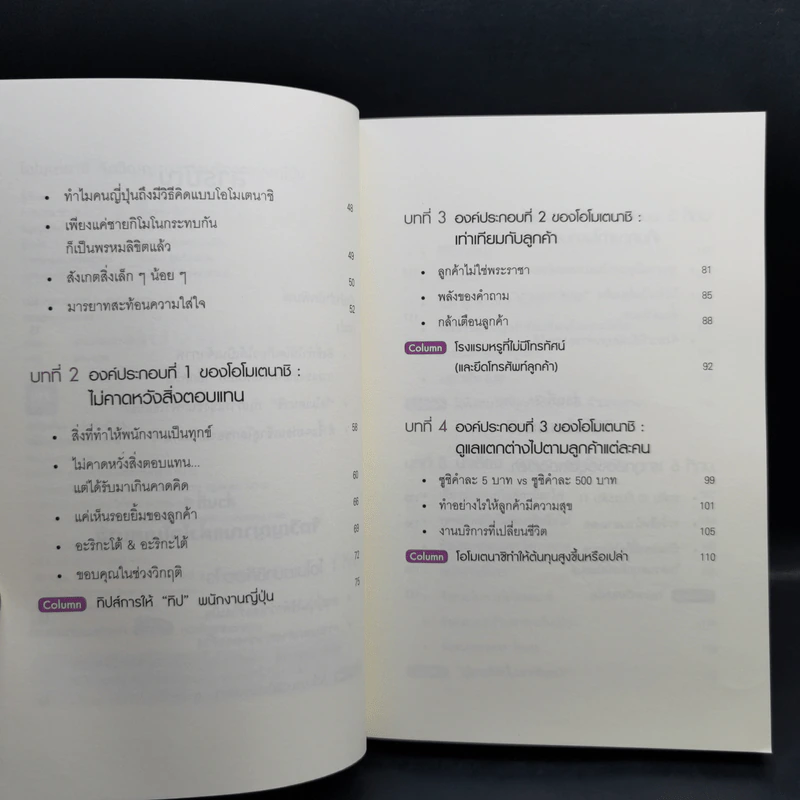 • ทำไมคนญี่ปุ่นถึงมีวิธีคิดแบบโอโมเตนาชิ 48
• เพียงแค่ชายกิโมโนกระทบกัน
ก็เป็นพรหมลิขิตแล้ว 49
• สังเกตสิ่งเล็ก ๆ น้อย ๆ 50
• มารยาทสะท้อนความใส่ใจ 52
บทที่ 2 องค์ประกอบที่ 1 ของโอโมเตนาชิ :
ไม่คาดหวังสิ่งตอบแทน
• สิ่งที่ทำให้พนักงานเป็นทุกข์ 58
• ไม่คาดหวังสิ่งตอบแทน...
แต่ได้รับมาเกินคาดคิด 60
• แค่เห็นรอยยิ้มของลูกค้า 66
• อะริกะโต้ & อะริกะไต้ 69
• ขอบคุณในช่วงวิกฤติ 72
Column ทิปส์การให้ “ทิป” พนักงานญี่ปุ่น 75
บทที่ 3 องค์ประกอบที่ 2 ของโอโมเตนาชิ :
เท่าเทียมกับลูกค้า
• ลูกค้าไม่ใช่พระราชา 81
• พลังของคำถาม 85
• กล้าเตือนลูกค้า 88
Column โรงแรมหรูที่ไม่มีโทรทัศน์
(และยึดโทรศัพท์ลูกค้า) 92
บทที่ 4 องค์ประกอบที่ 3 ของโอโมเตนาชิ :
ดูแลแตกต่างไปตามลูกค้าแต่ละคน
• ซูชิคำละ 5 บาท vs ซูชิคำละ 500 บาท 99
• ทำอย่างไรให้ลูกค้ามีความสุข 101
• งานบริการที่เปลี่ยนชีวิต 105
Column โอโมเตนาชิทำให้ต้นทุนสูงขึ้นหรือเปล่า 110